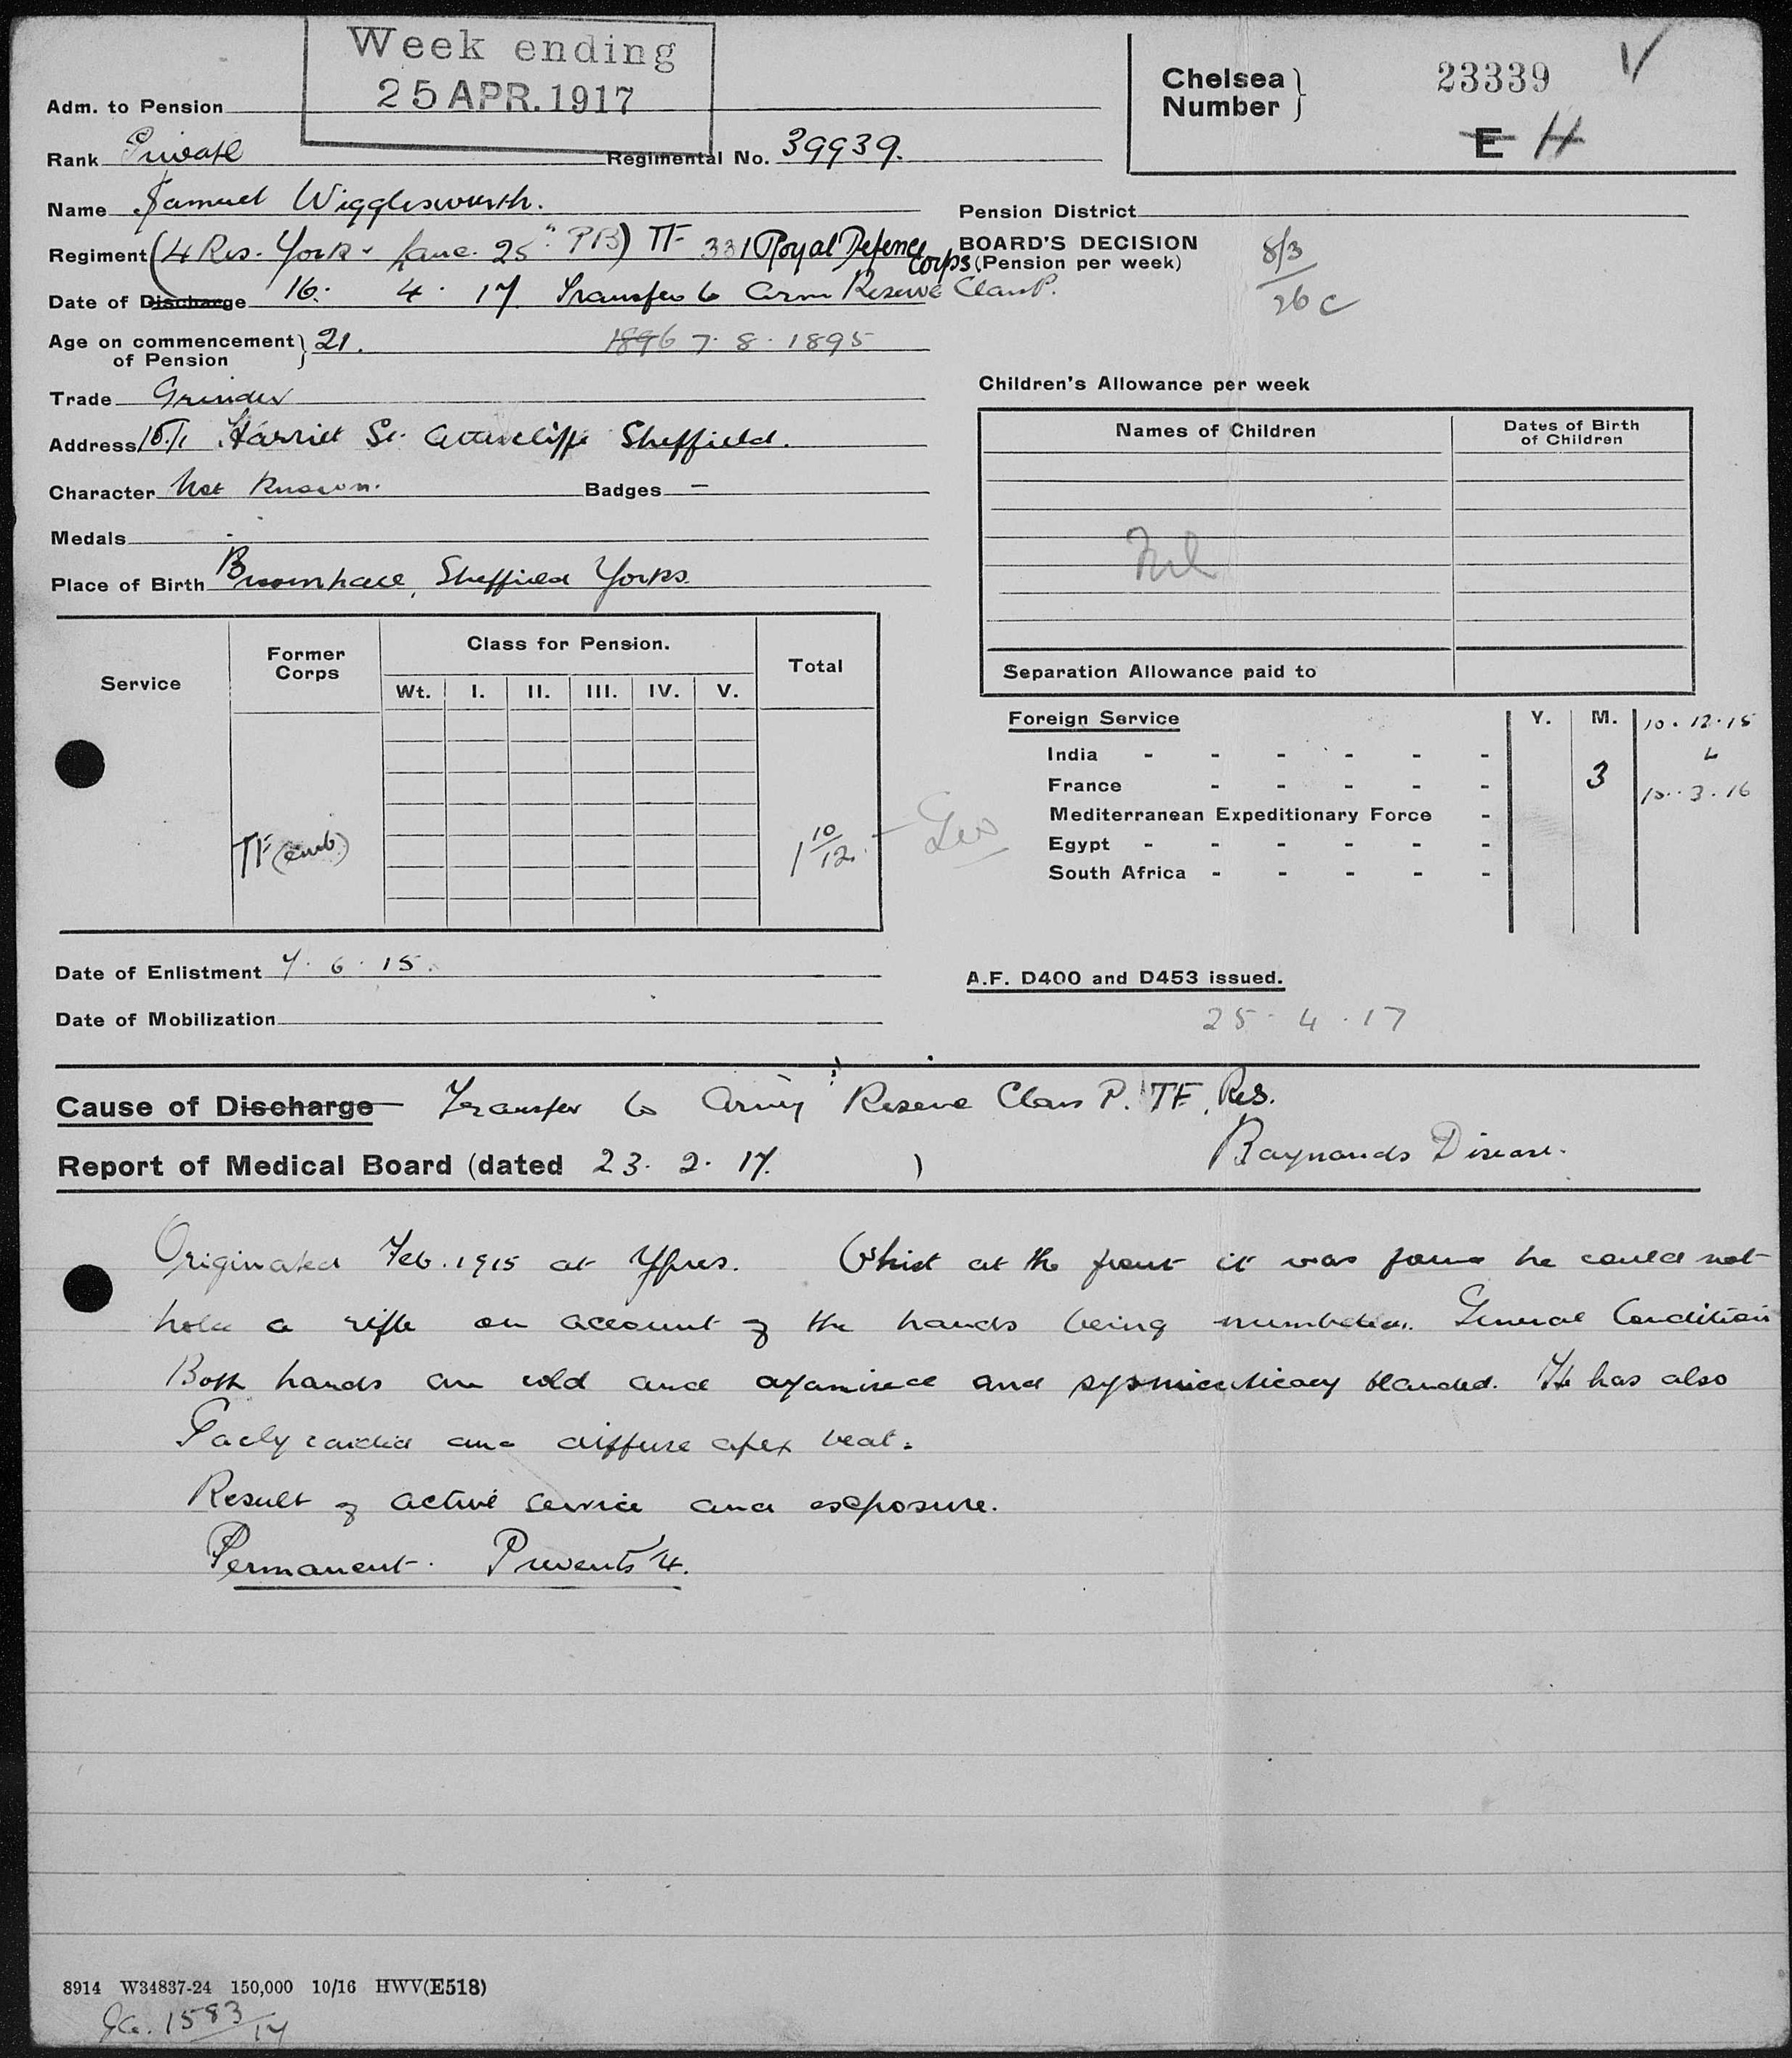 Week ending
25 APR. 1917
Chelsea Number } 23339
E H
Adm. to Pension
Rank Private Regimental No. 39939.
Name Samuel Wigglesworth.
Pension District
Regiment (4 Res. York & Lanc. 25" PB) TF 331 Royal Defence Corps
BOARD'S DECISION
(Pension per week)
8/3
26 C
Date of Discharge 16. 4. 17 Transfer to Arm Reserve Class P.
Age on commencement of Pension } 21. 1896 7. 8. 1895
Trade Grinder
Address Harriet St. Attercliffe Sheffield.
Character Not Known. Badges –
Medals
Place of Birth Broomhall, Sheffield Yorks.
Children's Allowance per week
Names of Children Dates of Birth of Children
Nil
Separation Allowance paid to
Service Former Corps Class for Pension. Total
Wt. I. II. III. IV. V.
TF (emb) 1 10/12
Foreign Service Y. M. 10. 12. 15
India - - - - - - to
France - - - - - 3 10. 3. 16
Mediterranean Expeditionary Force -
Egypt - - - - - -
South Africa - - - - -
Date of Enlistment 7. 6. 15.
Date of Mobilization
A.F. D400 and D453 issued.
25. 4. 17
Cause of Discharge Transfer to Army Reserve Class P. TF. Res.
Report of Medical Board (dated 23. 2. 17. ) Raynauds Disease.
Originated Feb. 1915 at Ypres. Whist at the front it was found he could not
hold a rifle on account of the hands being numbed. General Condition
Both hands are cold and and blanched. He has also
Tachycardia and diffuse apex beat.
Result of active service and exposure.
Permanent. Prevents ¼.
8914 W34837-24 150,000 10/16 HWV(E518)
1583/17